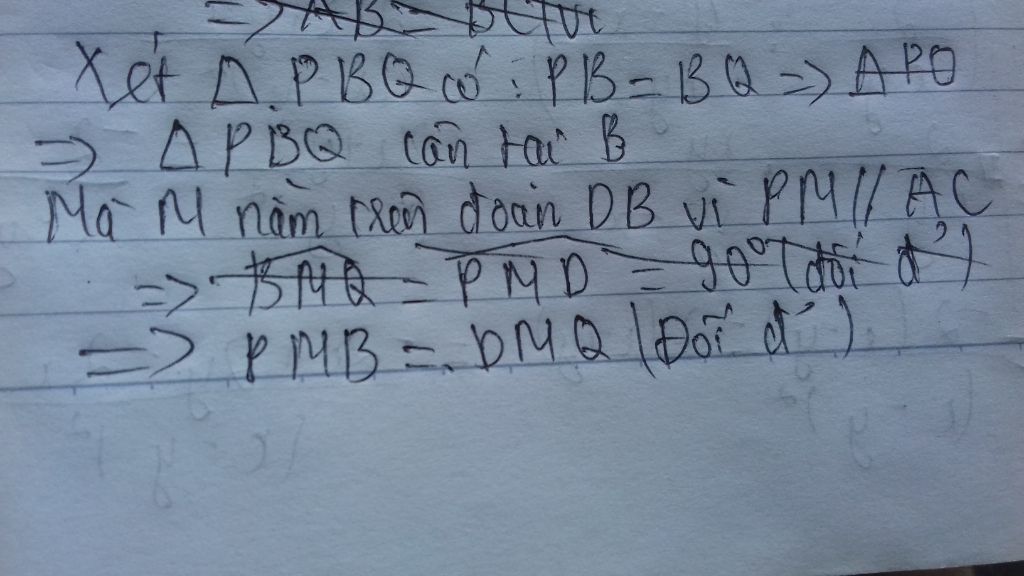 => AB = BC
Xét Δ PBQ có : PB = BQ => ΔPQ
=> Δ PBQ cân tại B
Mà M nằm trên đoạn DB vì PM // AC
=> BMQ = PMD = 90° (đối đ')
=> PMB = DMQ (Đối đ')